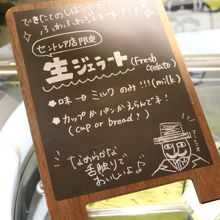 できたてのしぼりたて
ふわふわ
セントレア店限定
生ジェラート (Fresh Gelato)
・味→ミルクのみ!!! (milk)
・カップかパンかえらんでネ!
(cup or bread?)
なめらかな
舌触りで
おいしいよ♪